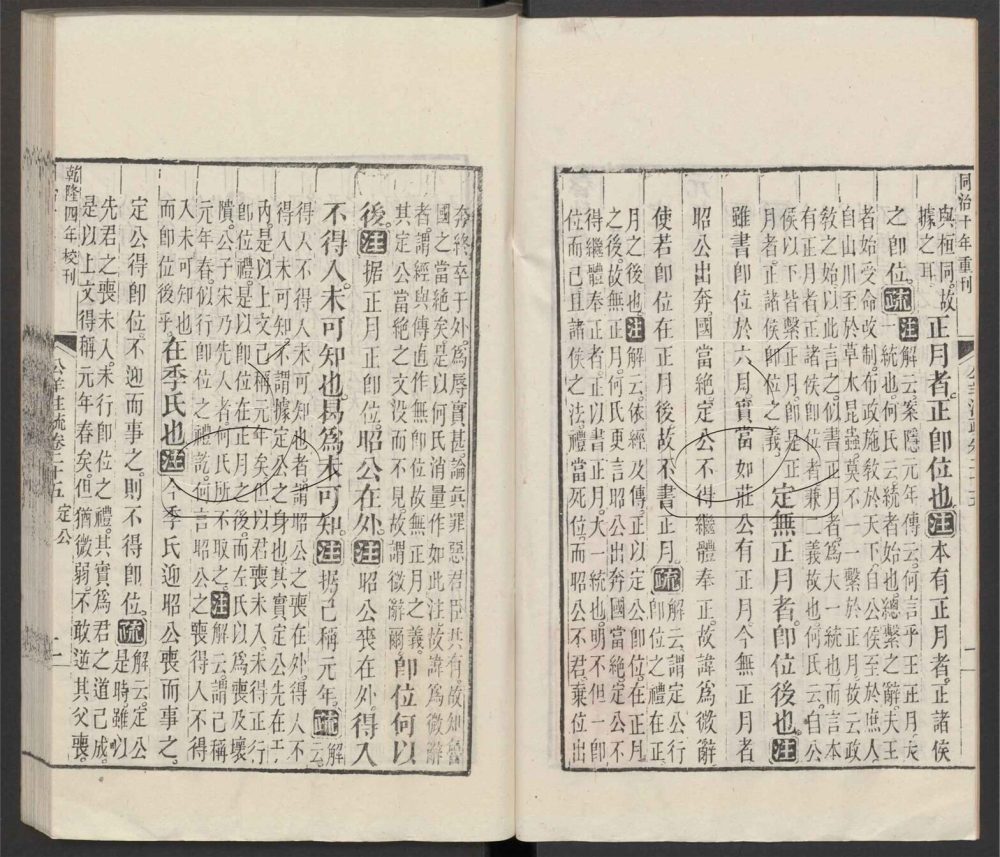 同治十年重刊
與桓同故
據之耳
正月者正即位也注本有正月者正諸侯
之即位疏
注解云案隱元年傳云何言乎王正月大
一統也何氏云統者始也總繫之辭夫王
者始受命改制布政施教於天下自公侯至於庶人
自山川至於草木昆蟲莫不一一繫於正月故云政
教之始以此言之似書正月者爲大一統也而言本
有正月者正諸侯即位者兼二義故也何氏云自公
侯以下皆繫正月即是正
月者正諸侯即位之義
定無正月者即位後也注
雖書即位於六月實當如莊公有正月今無正月者
昭公出奔國當絕定公不得繼體奉正故諱爲微辭
使若即位在正月後故不書正月疏
解云謂定公行
即位之禮在正
月之後也注解云依經及傳正以定公即位在正月
之後故無正月何氏更言昭公出奔國當絕定公不
得繼體奉正者正以書正月大一統也明不但一即
位而已且諸侯之法禮當死位而昭公不君棄位出
公羊注疏卷二十五
一
奔終卒于外爲辱實甚論其罪惡君臣共有故知魯
國之當絕矣是以何氏消量作如此注故諱爲微辭
者謂經與傳直作無即位故無正月之義
其定公當絕之文沒而不見故謂微辭爾
即位何以
後注据正月正即位昭公在外注昭公喪在外得入
不得入未可知也曷爲未可知注据已稱元年疏
解
云
得入不得入未可知也者謂昭公之喪在外得入不
得入未可知不謂據定公之身也其實定公先在于
內是以上文已稱元年矣但以君喪未入未得正行
即位禮是以即位在正月之後而左氏以爲喪及壞
隤公子宋乃先入者何氏所不取之注解云謂已稱
元年春似行即位之禮訖何言昭公之喪得入不得
入未可知也
而即位後乎
在季氏也注今季氏迎昭公喪而事之
定公得即位不迎而事之則不得即位疏
解云定公
是時雖以
先君之喪未入未行即位之禮其實爲君之道已成
是以上文得稱元年春矣但猶微弱不敢逆其父喪
乾隆四年校刊
公羊注疏卷二十五 定公
二